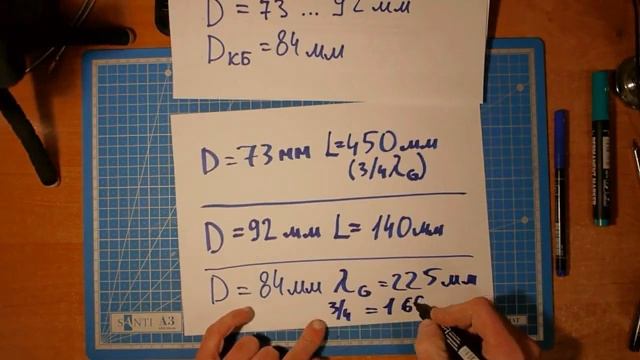 D = 73 ... 92 мм
Dкб = 84 мм
D = 73 мм L = 450 мм
(3/4 λG)
D = 92 мм L = 140 мм
D = 84 мм λG = 225 мм
3/4 = 16
SANTI A3